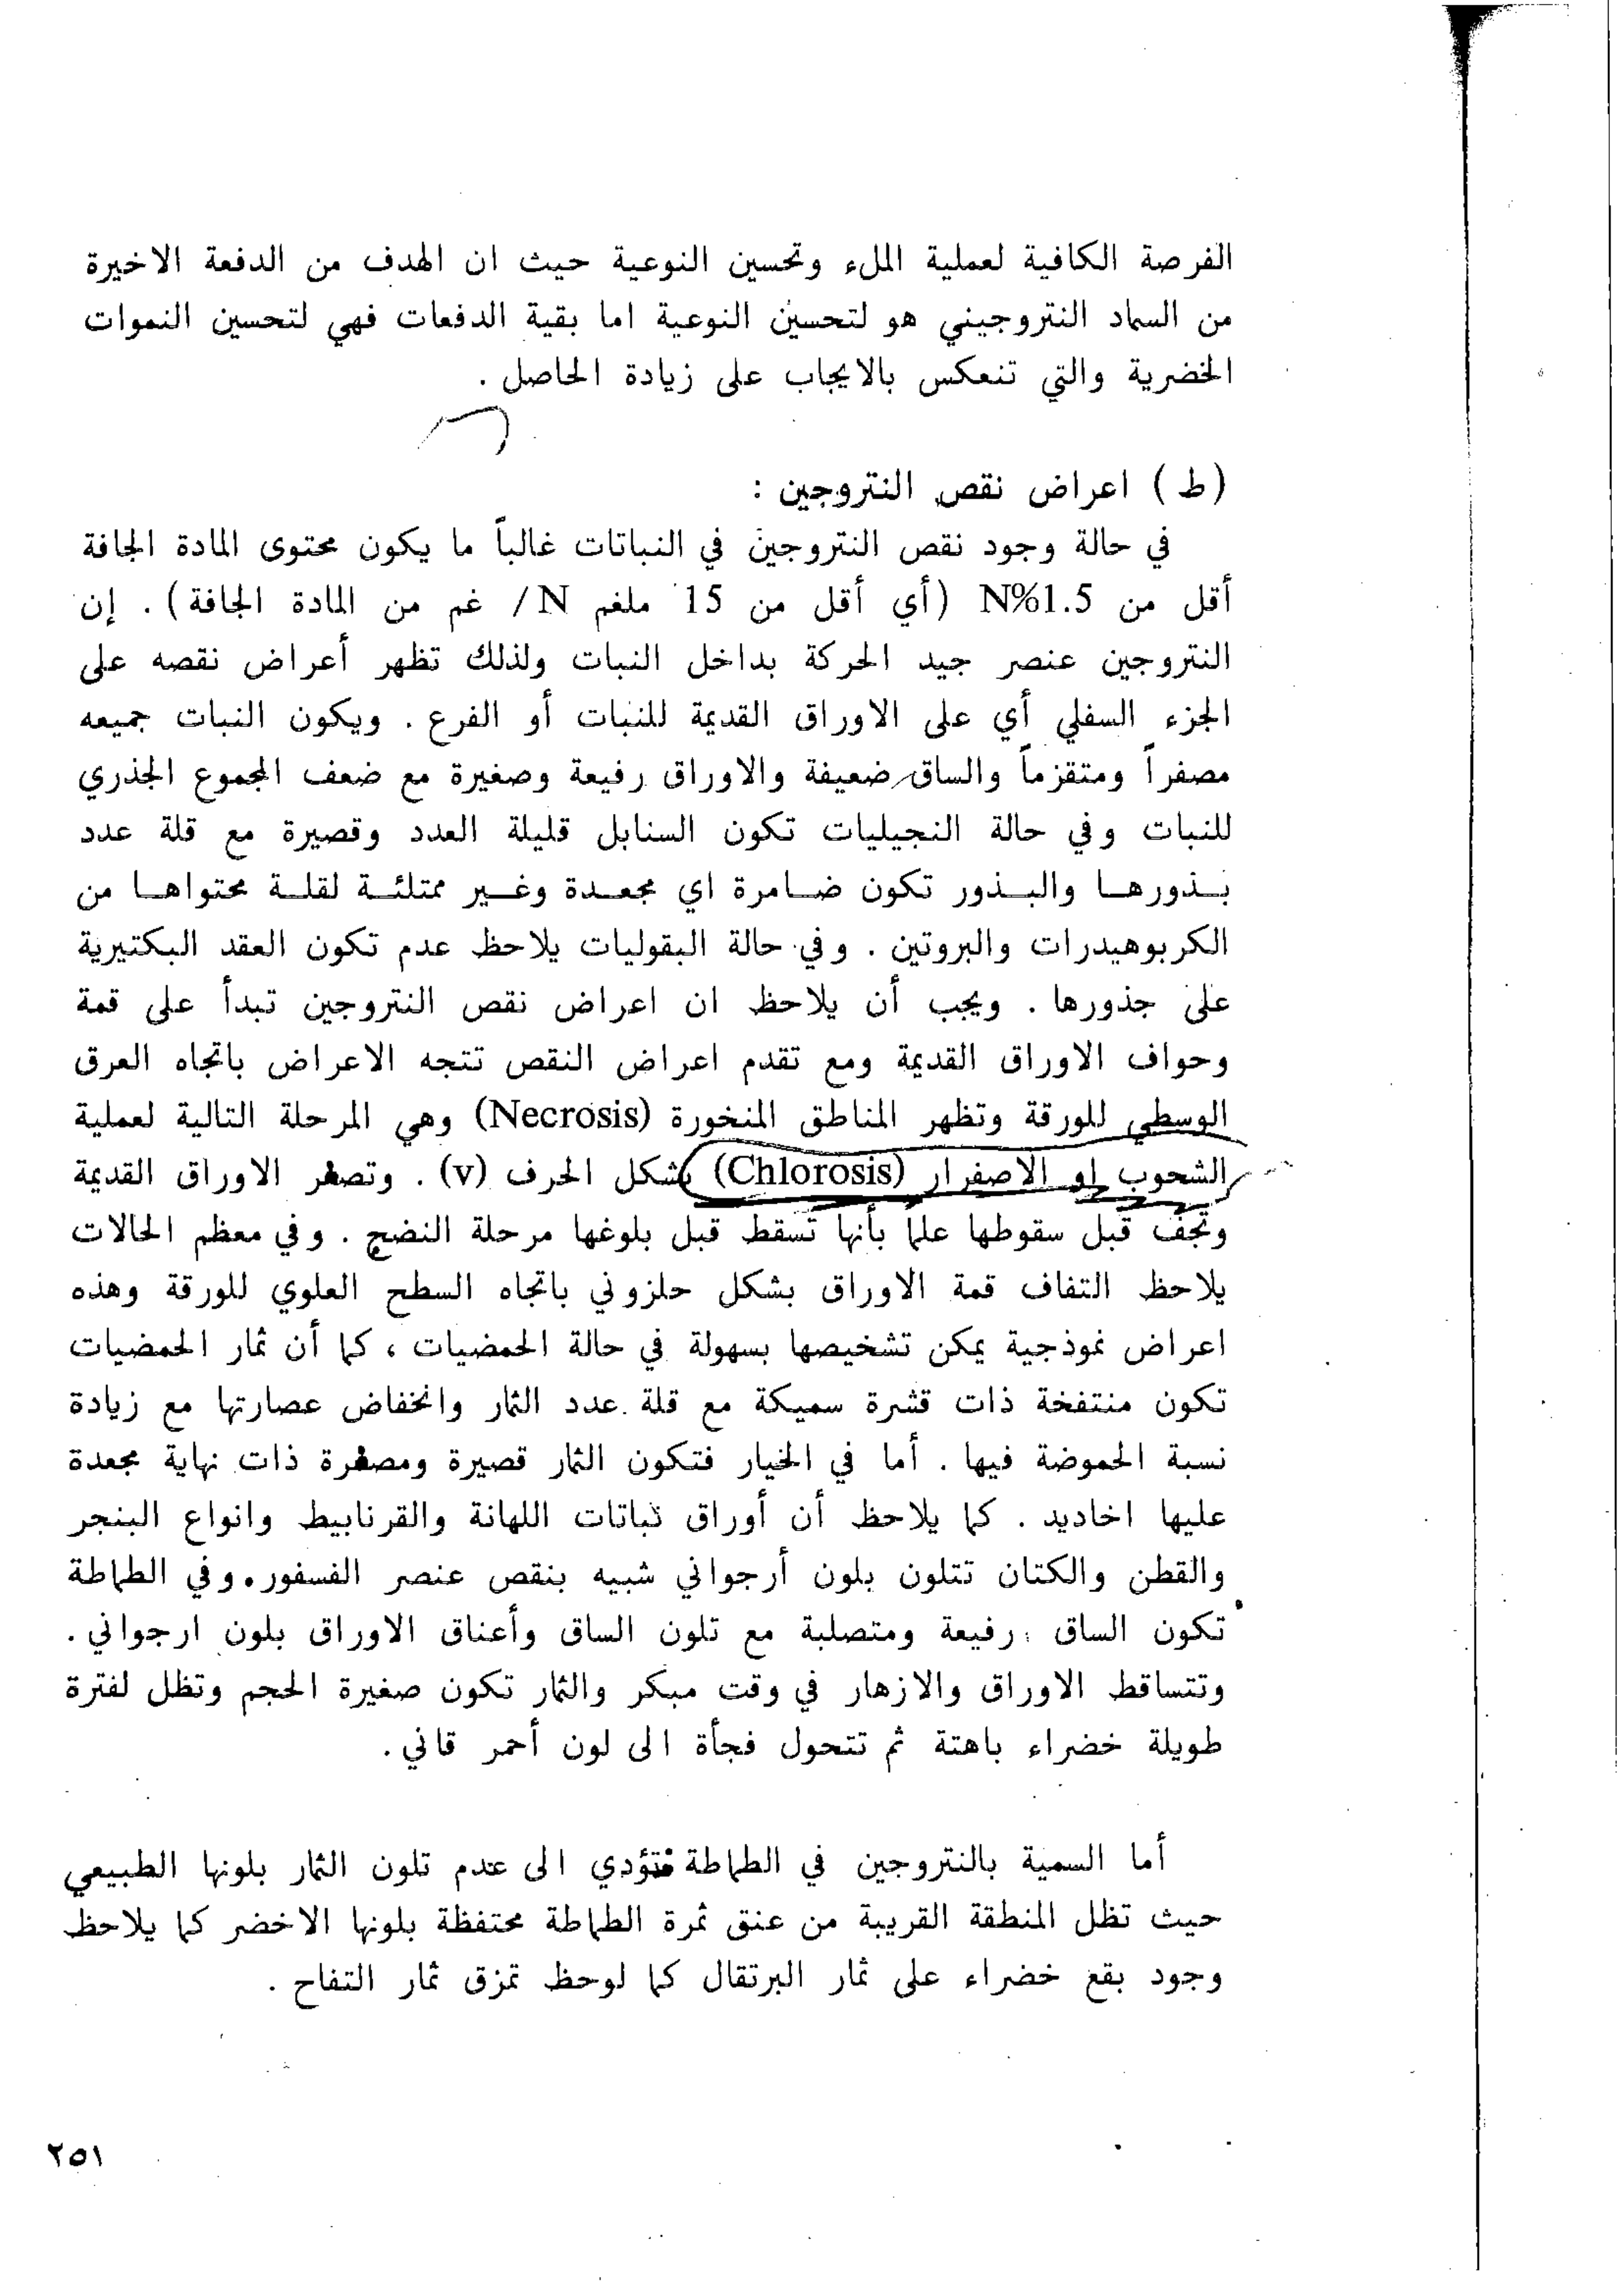 الفرصة الكافية لعملية الملء وتحسين النوعية حيث ان الهدف من الدفعة الاخيرة
من السماد النتروجيني هو لتحسين النوعية اما بقية الدفعات فهي لتحسين النموات
الخضرية والتي تنعكس بالايجاب على زيادة الحاصل .
(ط) اعراض نقص النتروجين :
في حالة وجود نقص النتروجين في النباتات غالباً ما يكون محتوى المادة الجافة
أقل من 1.5%N (أي أقل من 15 ملغم N/ غم من المادة الجافة) . إن
النتروجين عنصر جيد الحركة بداخل النبات ولذلك تظهر أعراض نقصه على
الجزء السفلي أي على الاوراق القديمة للنبات أو الفرع . ويكون النبات جميعه
مصفراً ومتقزماً والساق ضعيفة والاوراق رفيعة وصغيرة مع ضعف المجموع الجذري
للنبات وفي حالة النجيليات تكون السنابل قليلة العدد وقصيرة مع قلة عدد
بذورها والبذور تكون ضامرة اي مجعدة وغير ممتلئة لقلة محتواها من
الكربوهيدرات والبروتين . وفي حالة البقوليات يلاحظ عدم تكون العقد البكتيرية
على جذورها . ويجب أن يلاحظ ان اعراض نقص النتروجين تبدأ على قمة
وحواف الاوراق القديمة ومع تقدم اعراض النقص تتجه الاعراض باتجاه العرق
الوسطي للورقة وتظهر المناطق المنخورة (Necrosis) وهي المرحلة التالية لعملية
الشحوب او الاصفرار (Chlorosis) بشكل الحرف (v) . وتصفر الاوراق القديمة
وتجف قبل سقوطها علماً بأنها تسقط قبل بلوغها مرحلة النضج . وفي معظم الحالات
يلاحظ التفاف قمة الاوراق بشكل حلزوني باتجاه السطح العلوي للورقة وهذه
اعراض نموذجية يمكن تشخيصها بسهولة في حالة الحمضيات ، كما أن ثمار الحمضيات
تكون منتفخة ذات قشرة سميكة مع قلة عدد الثمار وانخفاض عصارتها مع زيادة
نسبة الحموضة فيها . أما في الخيار فتكون الثمار قصيرة ومصفرة ذات نهاية مجعدة
عليها اخاديد . كما يلاحظ أن أوراق نباتات اللهانة والقرنابيط وانواع البنجر
والقطن والكتان تتلون بلون أرجواني شبيه بنقص عنصر الفسفور . وفي الطماطة
تكون الساق رفيعة ومتصلبة مع تلون الساق وأعناق الاوراق بلون ارجواني .
وتتساقط الاوراق والازهار في وقت مبكر والثمار تكون صغيرة الحجم وتظل لفترة
طويلة خضراء باهتة ثم تتحول فجأة الى لون أحمر قاني .
أما السمية بالنتروجين في الطماطة فتؤدي الى عدم تلون الثمار بلونها الطبيعي
حيث تظل المنطقة القريبة من عنق ثمرة الطماطة محتفظة بلونها الاخضر كما يلاحظ
وجود بقع خضراء على ثمار البرتقال كما لوحظ تمزق ثمار التفاح .
٢٥١